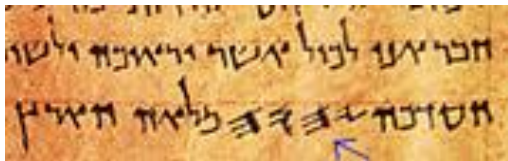 חבר אני לכול אשר יראוכה ולשו
חסדכה 𐤉𐤄𐤅𐤄 מלאה הארץ